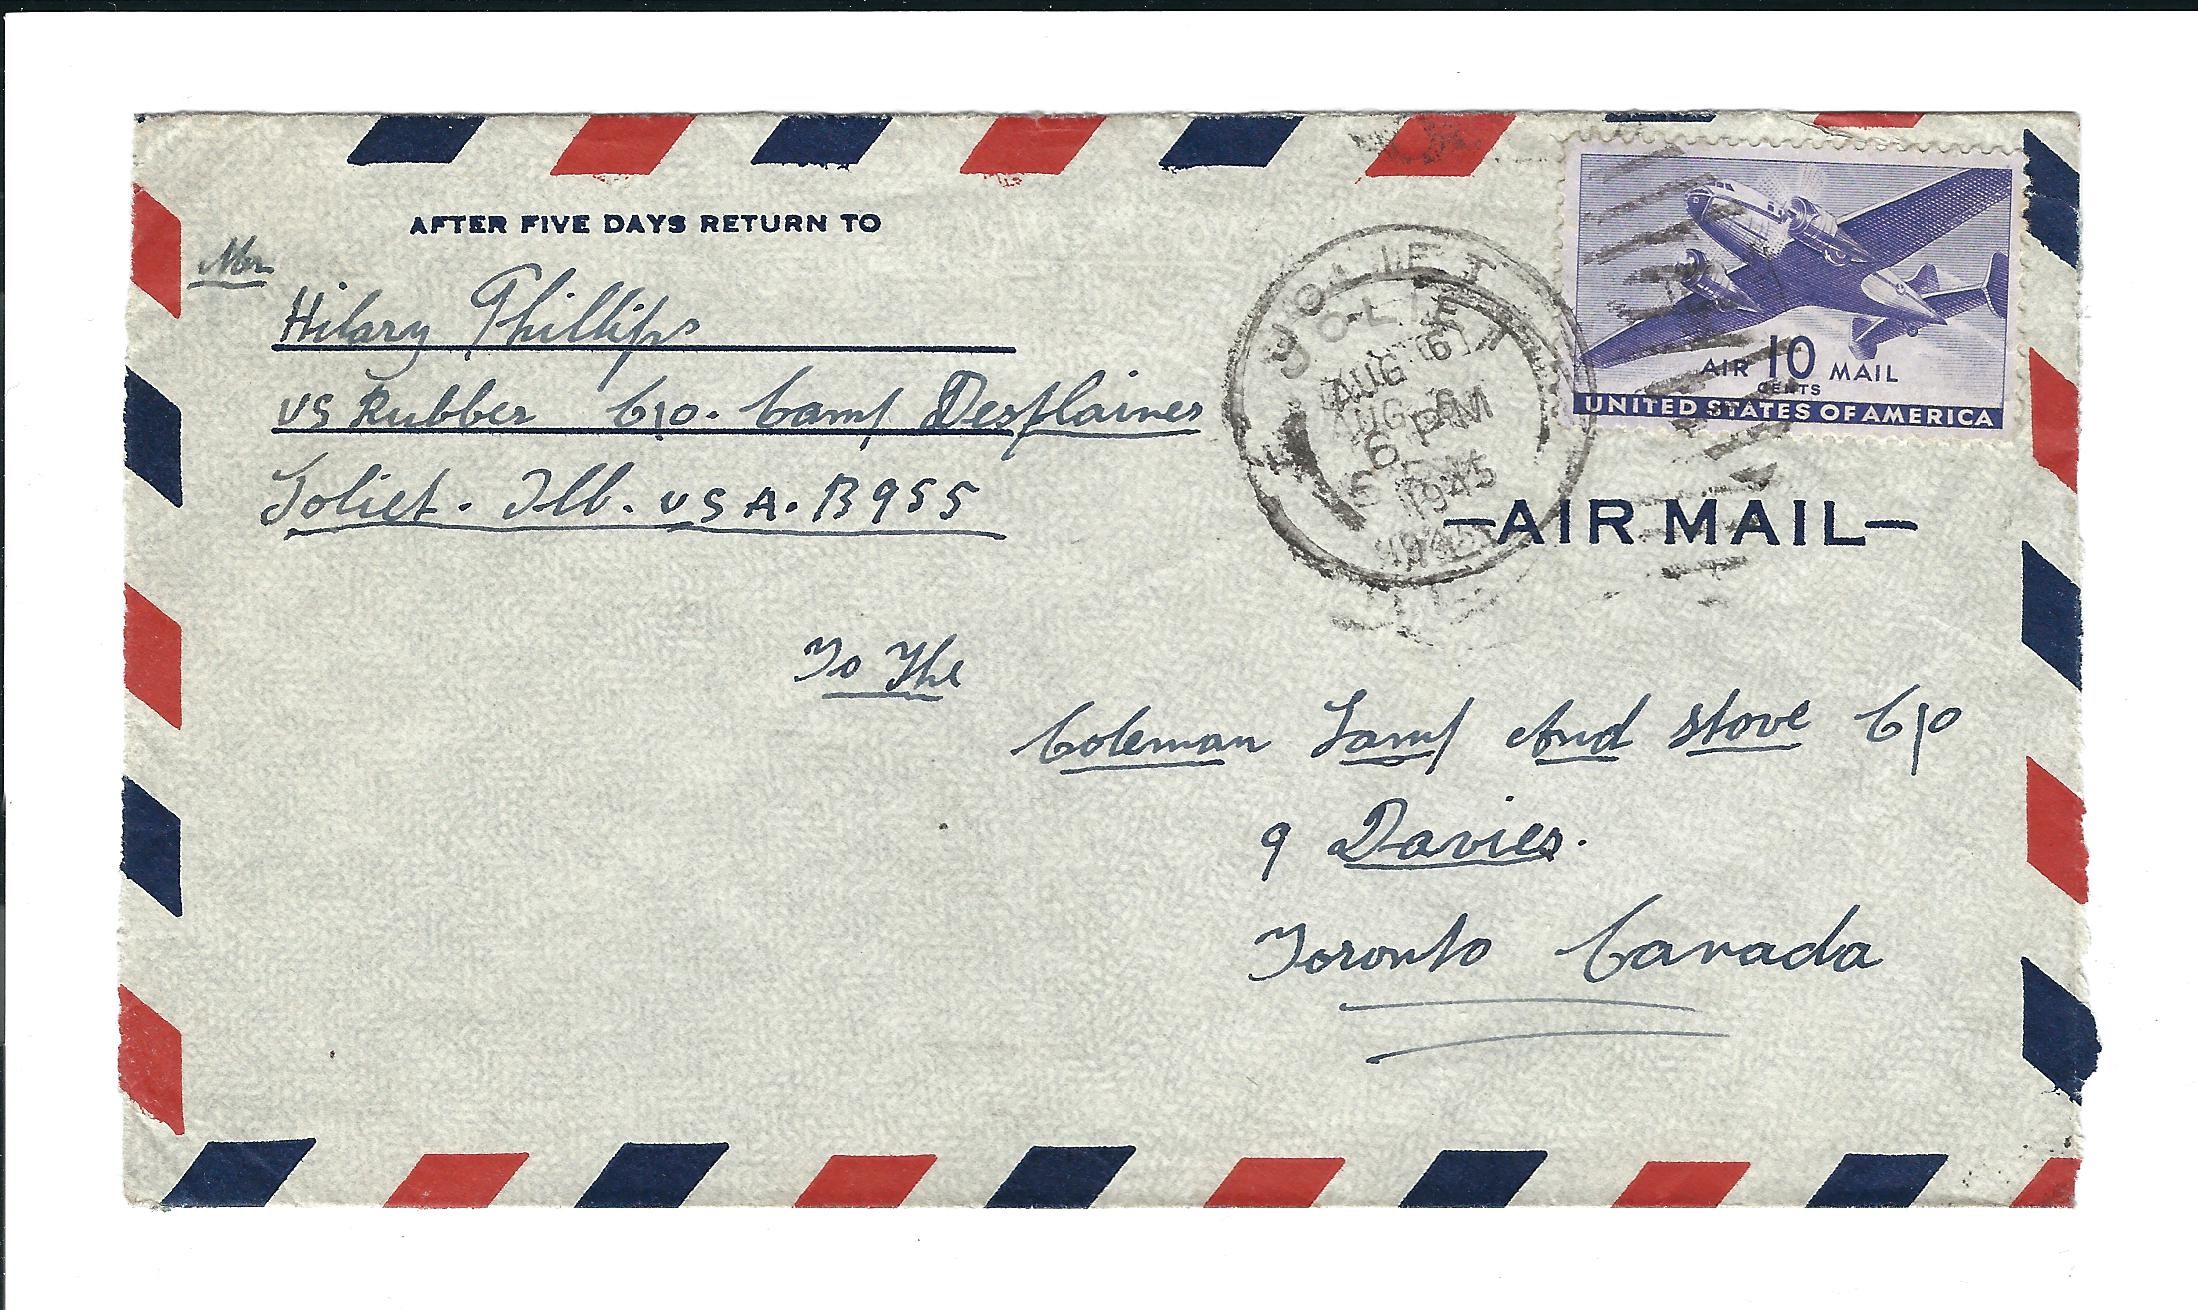 AFTER FIVE DAYS RETURN TO
Mr
Hilary Phillips
US Rubber C/o. Camp Desplaines
Joliet. Ill. U S A. B955
JOLIET
JOLIET
AUG 6
AUG 6
6 PM
6 PM
1945
1945
AIR 10 MAIL
CENTS
UNITED STATES OF AMERICA
—AIR MAIL—
To The
Coleman Lamp And Stove C/o
9 Davies.
Toronto Canada